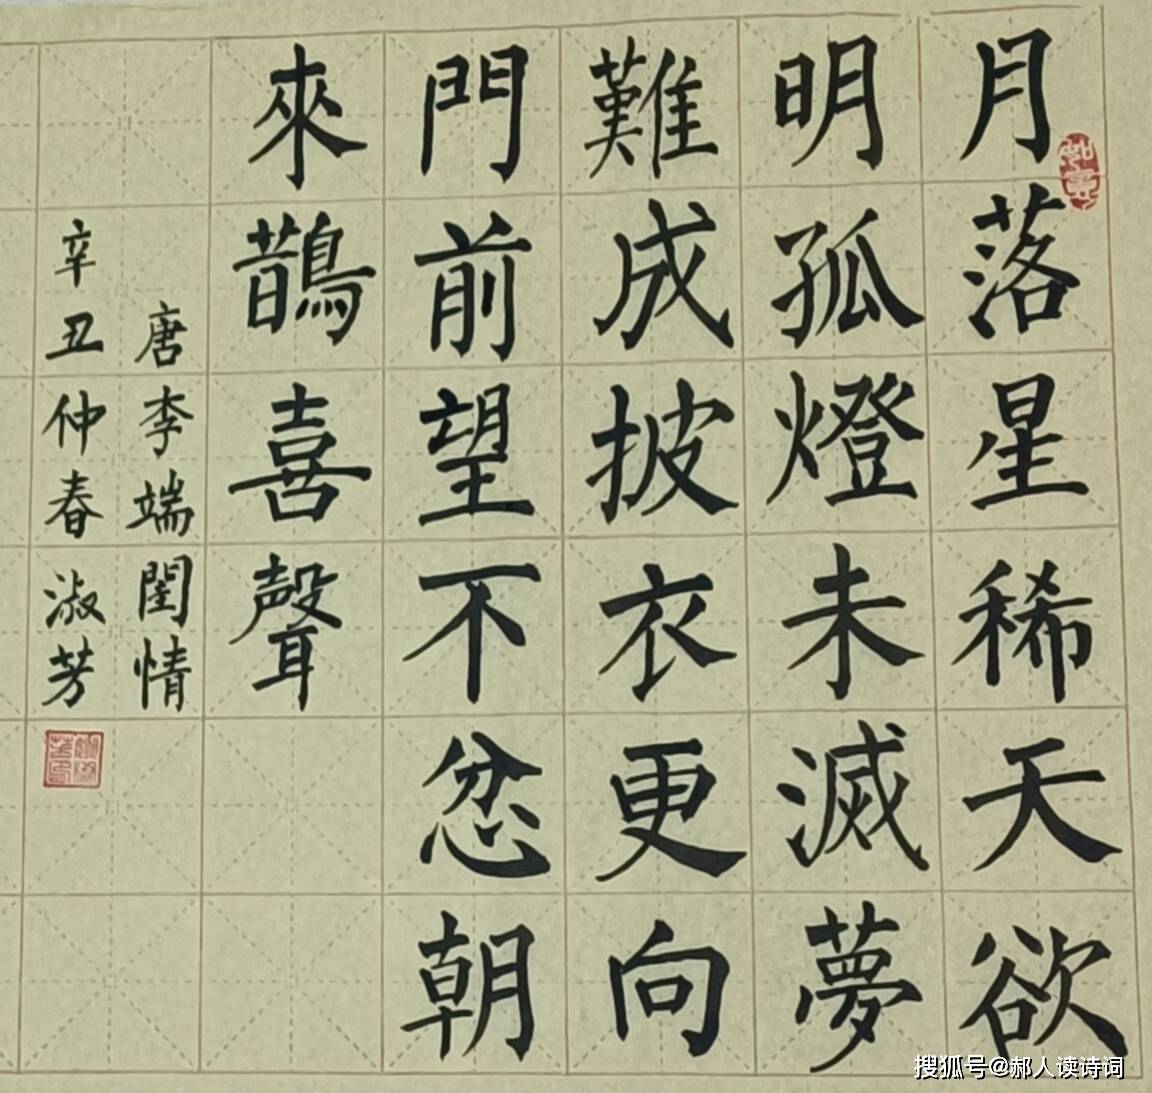 月落星稀天欲
明孤燈未滅夢
難成披衣更向
門前望不忿朝
來鵲喜聲
唐李端閨情
辛丑仲春淑芳
如意
搜狐号@郝人读诗词